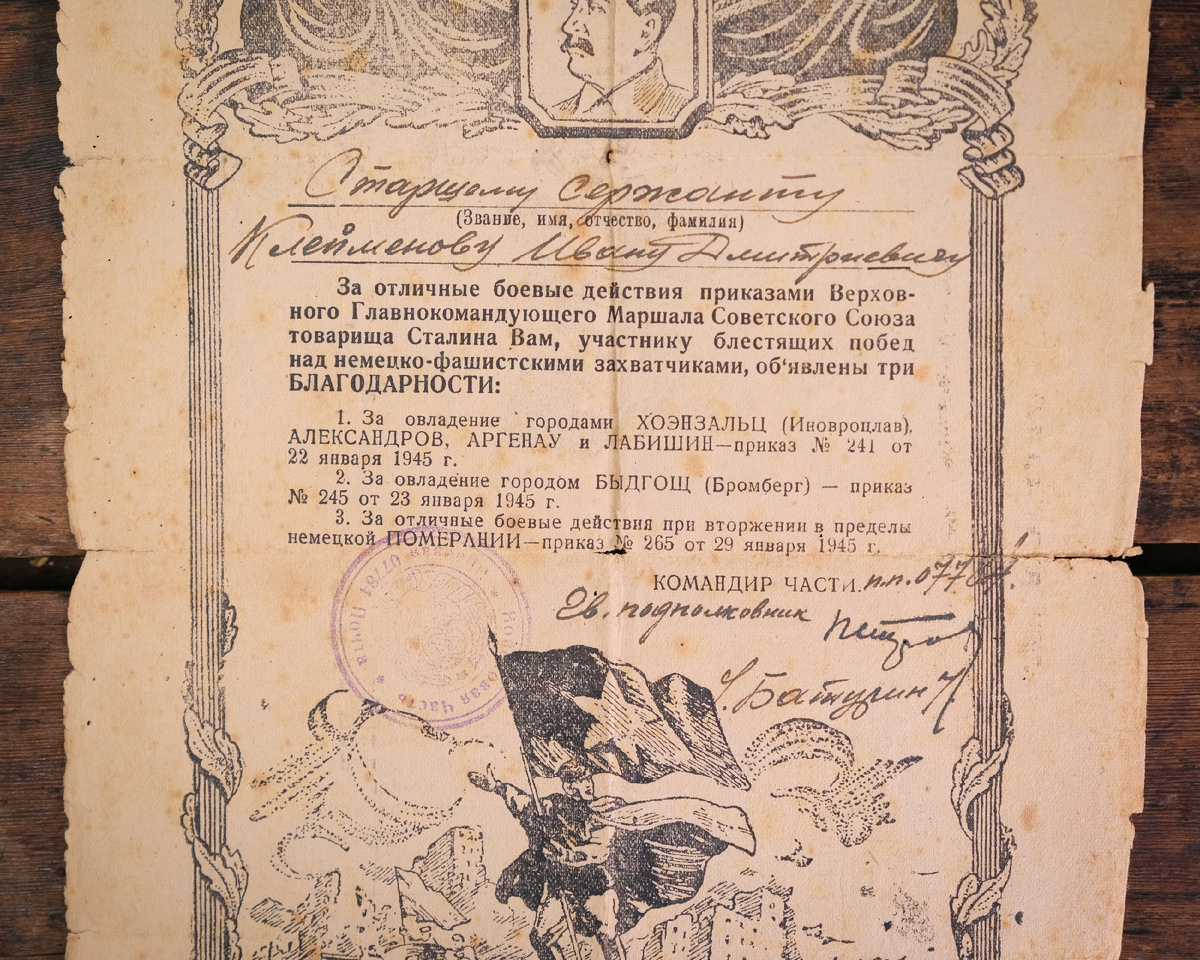 Старшему сержанту
(Звание, имя, отчество, фамилия)
Клейменову Ивану Дмитриевичу
За отличные боевые действия приказами Верхов-
ного Главнокомандующего Маршала Советского Союза
товарища Сталина Вам, участнику блестящих побед
над немецко-фашистскими захватчиками, об‘явлены три
БЛАГОДАРНОСТИ:
1. За овладение городами ХОЭНЗАЛЬЦ (Иновроцлав),
АЛЕКСАНДРОВ, АРГЕНАУ и ЛАБИШИН—приказ № 241 от
22 января 1945 г.
2. За овладение городом БЫДГОЩ (Бромберг) — приказ
№ 245 от 23 января 1945 г.
3. За отличные боевые действия при вторжении в пределы
немецкой ПОМЕРАНИИ—приказ № 265 от 29 января 1945 г.
КОМАНДИР ЧАСТИ п.п. 07784
Гв. подполковник
Петров
Батурин
07784 Почта
Часть